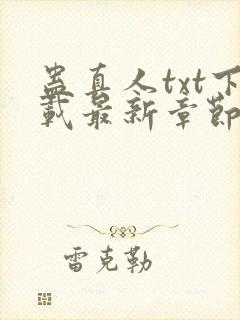 蛊真人txt下
载最新章节
雷克勒